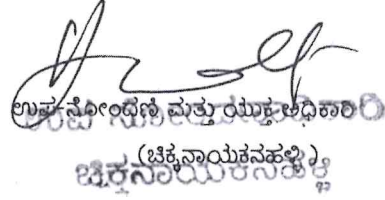 ಉಪ-ನೋಂದಣಿ ಮತ್ತು ಯುಕ್ತ ಅಧಿಕಾರಿ
(ಚಿಕ್ಕನಾಯಕನಹಳ್ಳಿ)
ಚಿಕ್ಕನಾಯಕನಹಳ್ಳಿ